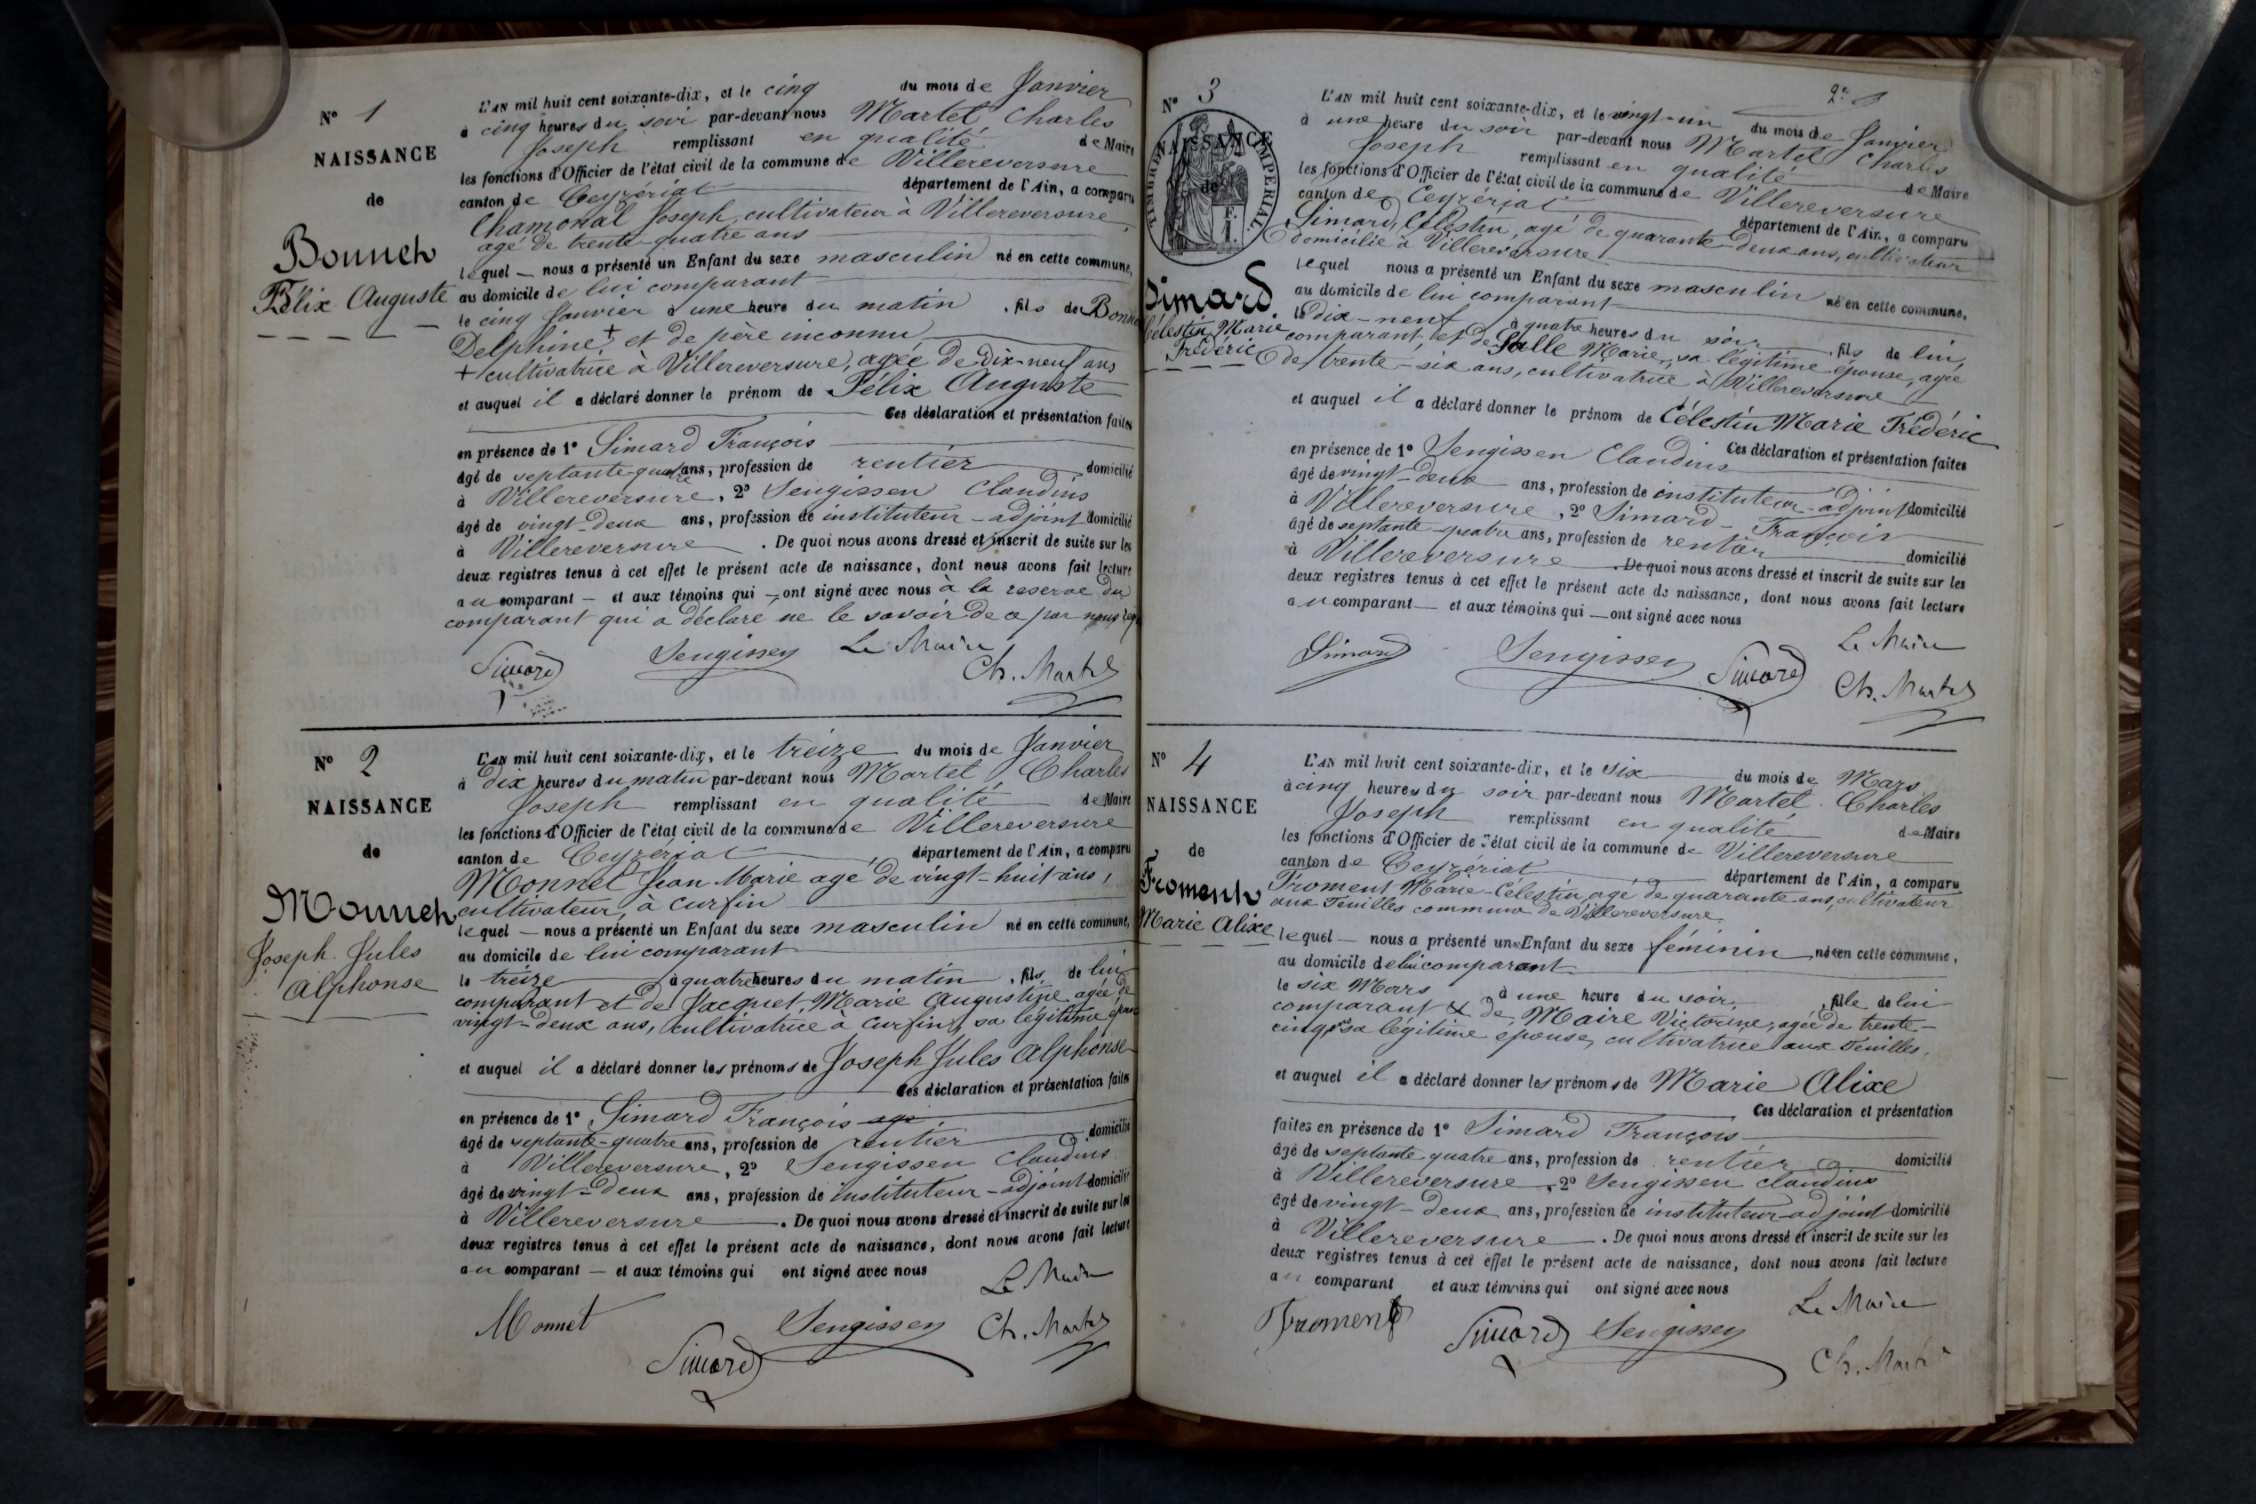 N° 1
NAISSANCE
de
Bonnet
Félix Auguste
L'AN mil huit cent soixante-dix, et le cinq du mois de Janvier
à cinq heures du soir par-devant nous Martel Charles
Joseph remplissant en qualité de Maire
les fonctions d'Officier de l'état civil de la commune de Villereversure
canton de Ceyzériat département de l'Ain, a comparu
Chamonal Joseph, cultivateur à Villereversure,
agé de trente-quatre ans
lequel nous a présenté un Enfant du sexe masculin né en cette commune,
au domicile de lui comparant
le cinq Janvier à une heure du matin, fils de Bonnet
Delphine + et de père inconnu
+ cultivatrice à Villereversure, agée de dix-neuf ans
et auquel il a déclaré donner le prénom de Félix Auguste
Ces déclaration et présentation faites
en présence de 1° Simard François
âgé de septante-quatre ans, profession de rentier domicilié
à Villereversure, 2° Sengissen Claudius
âgé de vingt-deux ans, profession de instituteur-adjoint domicilié
à Villereversure. De quoi nous avons dressé et inscrit de suite sur les
deux registres tenus à cet effet le présent acte de naissance, dont nous avons fait lecture
au comparant et aux témoins qui ont signé avec nous à la reserve du
comparant qui a déclaré ne le savoir de ce par nous
Simard Sengissen Le Maire
Ch. Martel
N° 2
NAISSANCE
de
Monnet
Joseph Jules
Alphonse
L'AN mil huit cent soixante-dix, et le treize du mois de Janvier
à dix heures du matin par-devant nous Martel Charles
Joseph remplissant en qualité de Maire
les fonctions d'Officier de l'état civil de la commune de Villereversure
canton de Ceyzériat, département de l'Ain, a comparu
Monnet Jean Marie agé de vingt-huit ans,
cultivateur, à Curfin
lequel nous a présenté un Enfant du sexe masculin né en cette commune,
au domicile de lui comparant
le treize à quatre heures du matin, fils de lui
comparant et de Jacquet, Marie Augustine agée de
vingt-deux ans, cultivatrice à Curfin, sa légitime épouse
et auquel il a déclaré donner les prénoms de Joseph Jules Alphonse
Ces déclaration et présentation faites
en présence de 1° Simard François
âgé de septante-quatre ans, profession de rentier domicilié
à Villereversure, 2° Sengissen Claudius
âgé de vingt-deux ans, profession de instituteur-adjoint domicilié
à Villereversure. De quoi nous avons dressé et inscrit de suite sur les
deux registres tenus à cet effet le présent acte de naissance, dont nous avons fait lecture
au comparant et aux témoins qui ont signé avec nous
Le Maire
Monnet Simard Sengissen Ch. Martel
2
N° 3
NAISSANCE
de
TIMBRE IMPERIAL
Simard
Célestin Marie
Frédéric
L'AN mil huit cent soixante-dix, et le vingt-un du mois de Janvier
à une heure du soir par-devant nous Martel Charles
Joseph remplissant en qualité de Maire
les fonctions d'Officier de l'état civil de la commune de Villereversure
canton de Ceyzériat département de l'Ain, a comparu
Simard, Célestin, agé de quarante-deux ans, cultivateur
domicilié à Villereversure
lequel nous a présenté un Enfant du sexe masculin né en cette commune,
au domicile de lui comparant
le dix-neuf à quatre heures du soir, fils de lui
comparant, et de Salle Marie, sa légitime épouse, agée
de trente-six ans, cultivatrice à Villereversure
et auquel il a déclaré donner le prénom de Célestin Marie Frédéric
Ces déclaration et présentation faites
en présence de 1° Sengissen Claudius
âgé de vingt-deux ans, profession de instituteur-adjoint domicilié
à Villereversure, 2° Simard-François
âgé de septante-quatre ans, profession de rentier domicilié
à Villereversure. De quoi nous avons dressé et inscrit de suite sur les
deux registres tenus à cet effet le présent acte de naissance, dont nous avons fait lecture
au comparant et aux témoins qui ont signé avec nous
Le Maire
Simard Sengissen Simard Ch. Martel
N° 4
NAISSANCE
de
Froment
Marie Alixe
L'AN mil huit cent soixante-dix, et le six du mois de Mars
à cinq heures du soir par-devant nous Martel Charles
Joseph remplissant en qualité de Maire
les fonctions d'Officier de l'état civil de la commune de Villereversure
canton de Ceyzériat département de l'Ain, a comparu
Froment Marie-Célestin, agé de quarante ans, cultivateur
aux Feuilles commune de Villereversure
lequel nous a présenté une Enfant du sexe féminin née en cette commune,
au domicile de lui comparant
le six Mars à une heure du soir, fille de lui
comparant & de Maire Victorine, agée de trente-
cinq, sa légitime épouse, cultivatrice aux Feuilles,
et auquel il a déclaré donner les prénoms de Marie Alixe
Ces déclaration et présentation
faites en présence de 1° Simard François
âgé de septante quatre ans, profession de rentier domicilié
à Villereversure, 2° Sengissen Claudius
âgé de vingt-deux ans, profession de instituteur-adjoint domicilié
à Villereversure. De quoi nous avons dressé et inscrit de suite sur les
deux registres tenus à cet effet le présent acte de naissance, dont nous avons fait lecture
au comparant et aux témoins qui ont signé avec nous
Le Maire
Froment Simard Sengissen
Ch. Martel